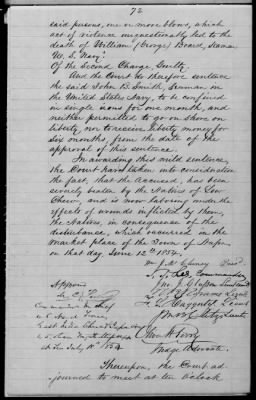 72
said persons, one or more blows, which
act of violence unquestionably led to the
death of William (George) Board, Seaman
U.S. Navy.
Of the Second Charge, Guilty.
And the Court do therefore sentence
the said John B. Smith, Seaman, in
the United States Navy, to be confined
in single irons for one month, and
neither permitted to go on shore on
liberty, nor to receive liberty money for
six months, from the date of the
approval of this sentence.
In awarding this mild sentence,
the Court have taken into consideration
the fact, that the Accused, has been
severely beaten by the Natives of Lew
Chew, and is now laboring under the
effects of wounds inflicted by them,
the Natives, in consequence of the
disturbance, which occurred in the
market place of the Town of Napa,
on that day June 12th 1854.
Presd.
Lee Commander
Approved
Commander in Chief
U.S. Naval Forces
East India China
July 1854
Judge Advocate.
Thereupon, the Court ad-
journed to meet at ten o'clock